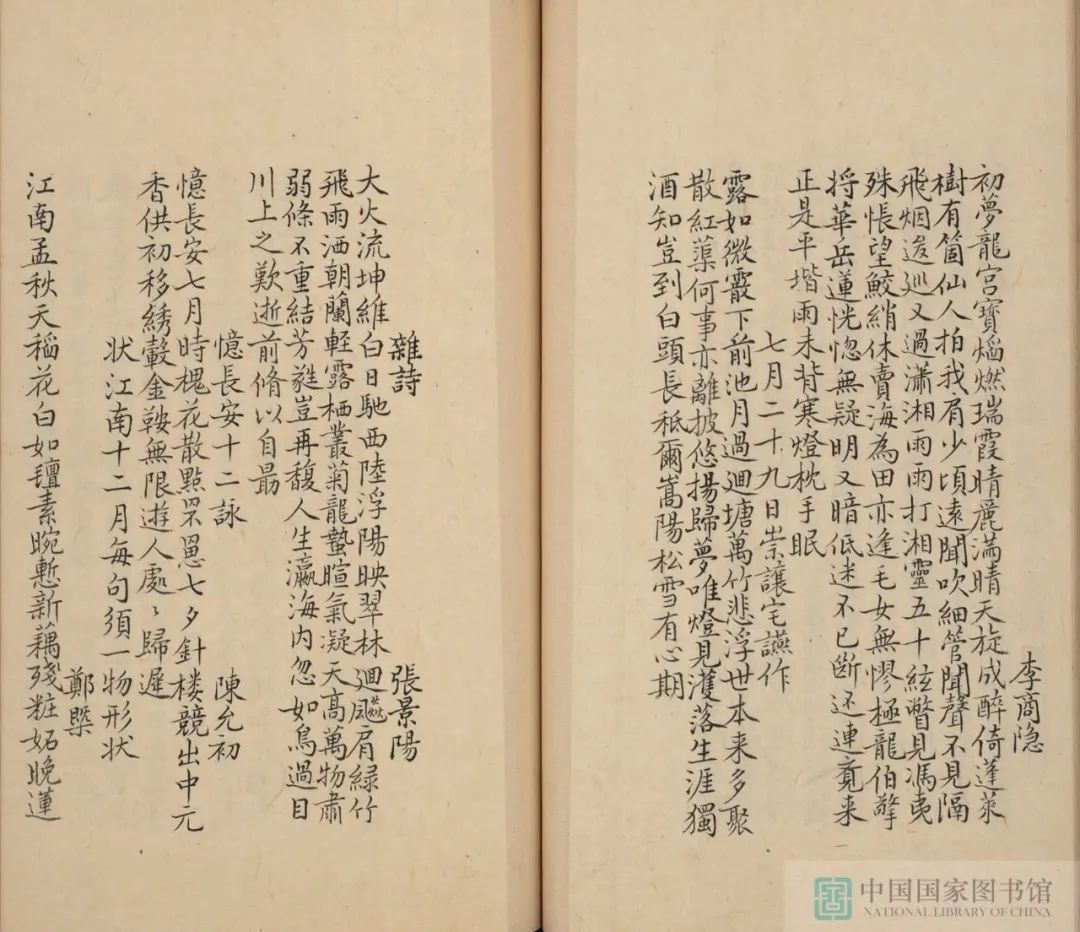 李商隐
初夢龍宫寶熖燃瑞霞晴麗滿晴天旋成醉倚蓬萊
樹有箇仙人拍我肩少頃遠聞吹細管聞聲不見隔
飛烟逡巡又過瀟湘雨雨打湘靈五十絃瞥見馮夷
殊悵望鮫綃休賣海為田亦逢毛女無憀極龍伯擎
将華岳蓮恍惚無疑明又暗低迷不已断还連竟来
正是平堦雨未背寒燈枕手眠
七月二十九日崇讓宅讌作
露如微霰下前池月過迴塘萬竹悲浮世本来多聚
散紅蕖何事亦離披悠揚歸夢唯燈見濩落生涯獨
酒知豈到白頭長秖爾嵩陽松雪有心期
雜詩 張景陽
大火流坤維白日馳西陸浮陽映翠林迴飇肩緑竹
飛雨洒朝蘭輕露栖叢菊龍蟄暄氣凝天高萬物肅
弱條不重結芳蕤豈再馥人生瀛海内忽如鳥過目
川上之歎逝前脩以自最
憶長安十二詠 陳允初
憶長安七月時槐花散點罘罳七夕針楼競出中元
香供初移綉轂金鞍無限遊人處〻歸遲
状江南十二月每句須一物形状
鄭槩
江南孟秋天稲花白如氊素腕慙新藕残粧妬晚蓮
中国国家图书馆
NATIONAL LIBRARY OF CHINA